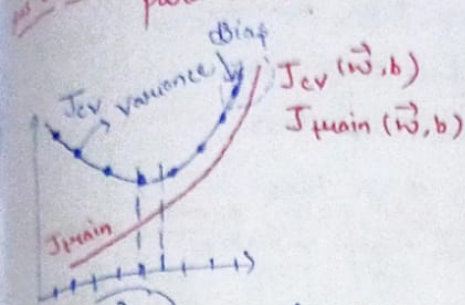 Bias
Jcv variance
Jcv (w⃗,b)
Jtrain (w⃗,b)
Jtrain